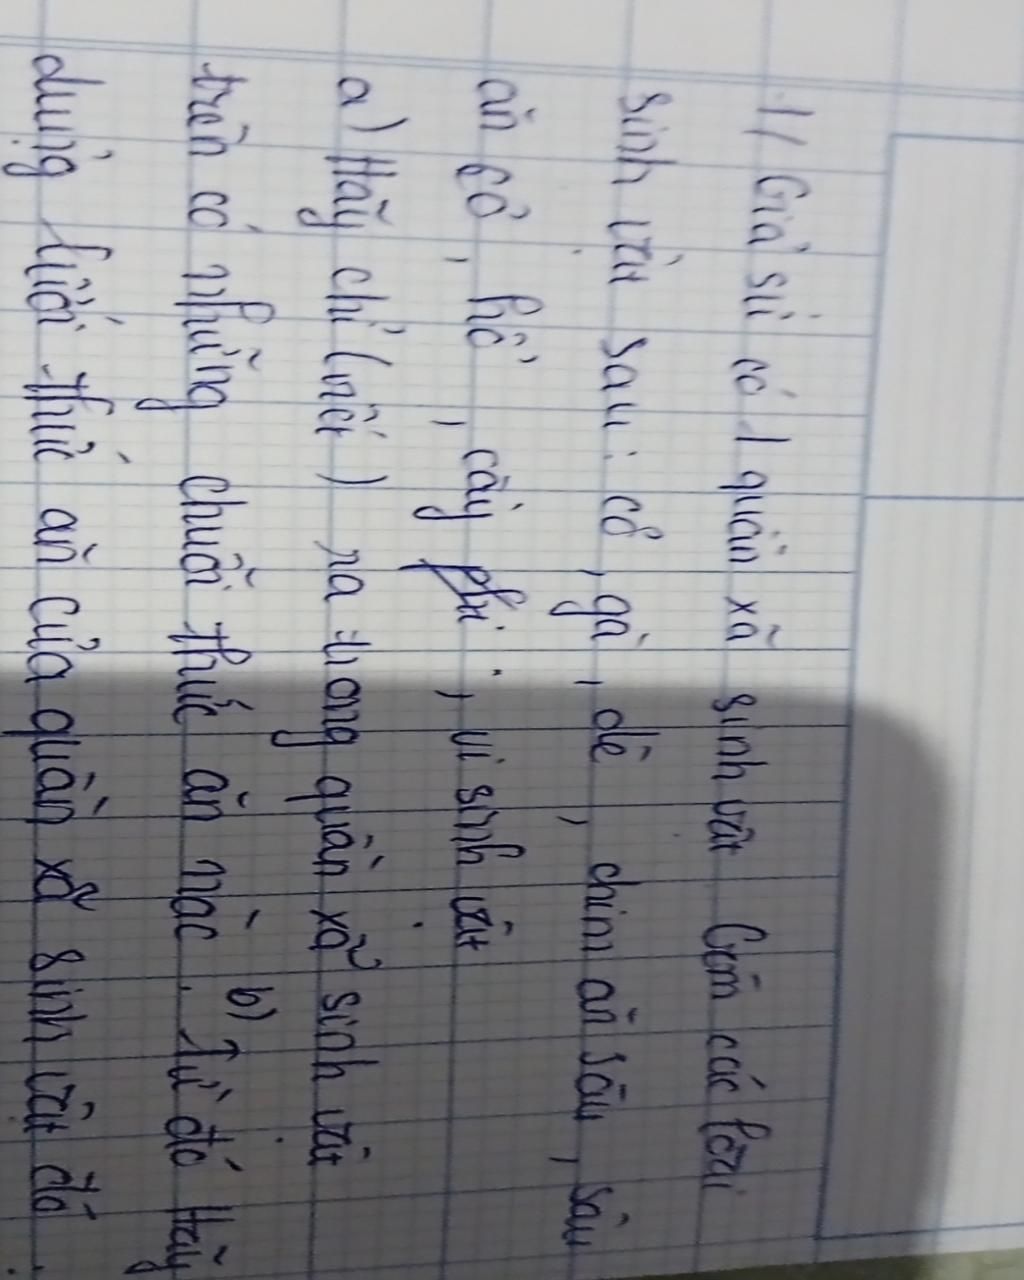 1/ Giả sử có 1 quần xã sinh vật Gồm các loài
sinh vật sau: cỏ, gà, dê, chim ăn sâu, sâu
ăn cỏ, hổ, cây, vi sinh vật
a) Hãy chỉ (viết) ra trong quần xã sinh vật
trên có những chuỗi thức ăn nào. b) Từ đó Hãy
dựng lưới thức ăn của quần xã sinh vật đó.